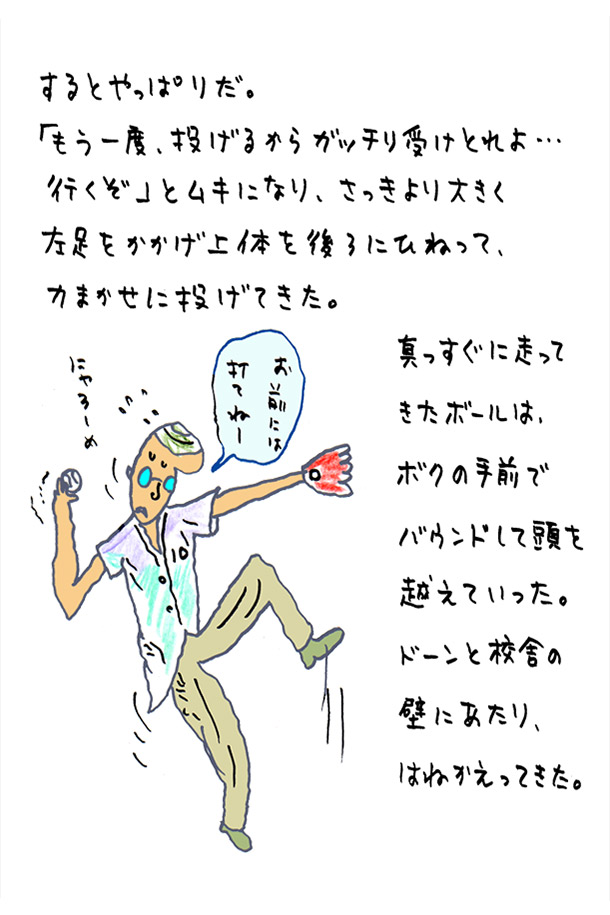 するとやっぱりだ。
「もう一度、投げるからガッチリ受けとれよ…
行くぞ」とムキになり、さっきより大きく
左足をかかげ上体を後ろにひねって、
力まかせに投げてきた。
真っすぐに走って
きたボールは、
ボクの手前で
バウンドして頭を
越えていった。
ドーンと校舎の
壁にあたり、
はねかえってきた。
お前には
打てねー
にゃろーめ
10